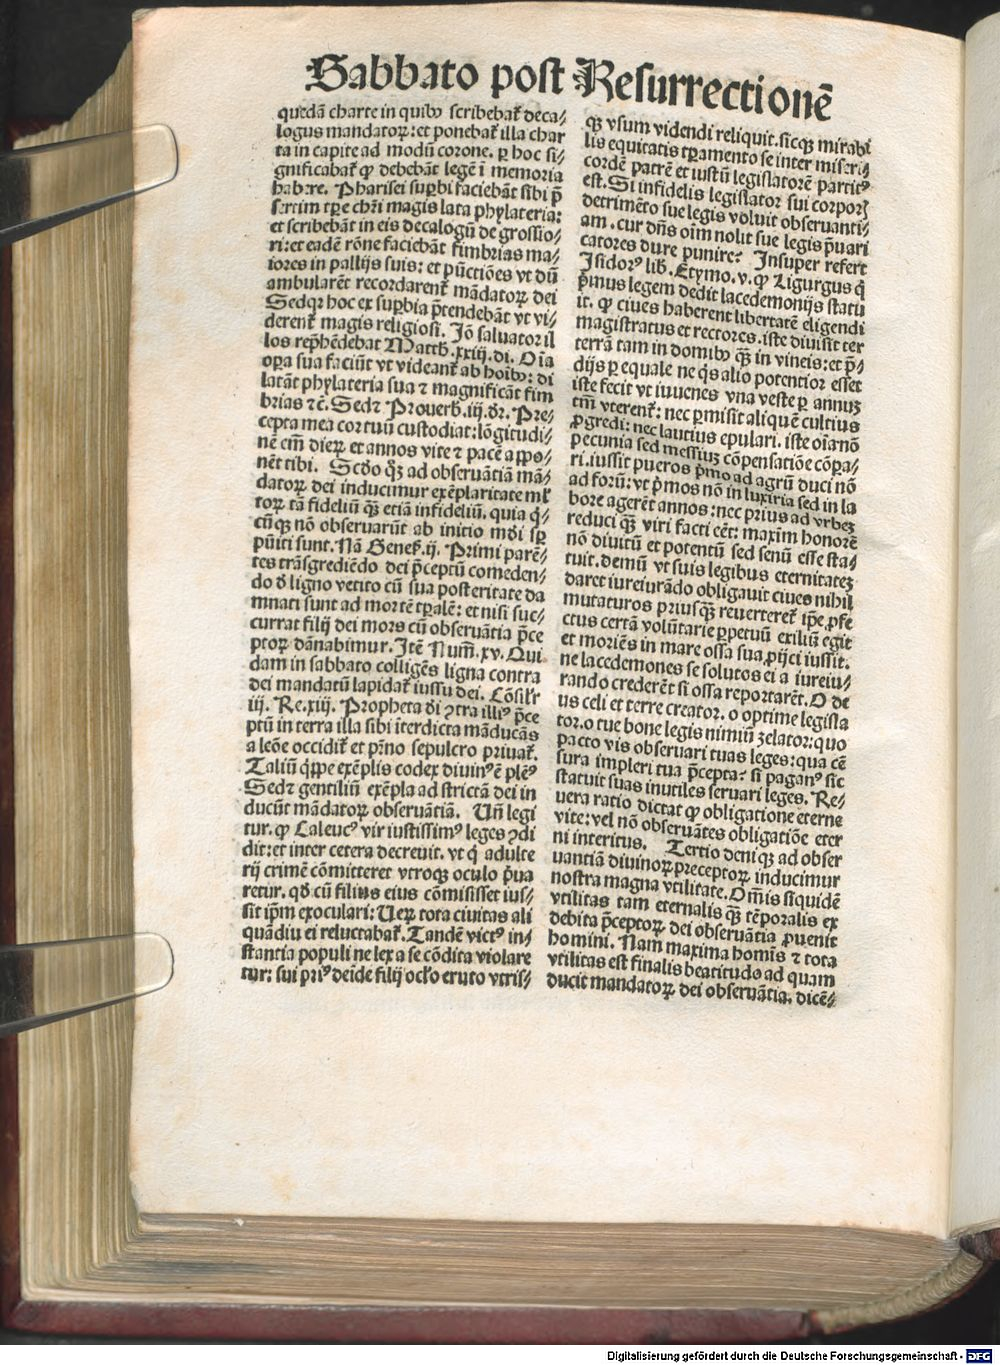 Sabbato post Resurrectionē
quedā charte in quibꝰ scribebat̉ deca⸗
logus mandatoꝝ: et ponebat̉ illa char
ta in capite ad modū corone. ꝑ hoc si⸗
gnificabat̉ ꝙ debebāt legē ī memoria
habere. Pharisei suꝑbi faciebāt sibi p̄
sertim tꝑe chr̄i magis lata phylateria:
et scribebāt in eis decalogū de grossio⸗
ri: et eadē rōne faciebāt fimbrias ma⸗
iores in pallijs suis: et pūctiōes vt dū
ambularēt recordarent̉ mādatoꝝ dei
Sedqꝫ hoc ex suꝑbia p̄tendebāt vt vi⸗
derent̉ magis religiosi. Iō saluator il
los rep̄hēdebat Matth̄.xxiij.di. Oīa
oꝑa sua faciūt vt videant̉ ab hoībꝰ: di
latāt phylateria sua ⁊ magnificāt fim
brias ⁊c̄. Sedꝫ Prouerb̄.iij.dr̄. Pre⸗
cepta mea cor tuū custodiat: lōgitudi⸗
nē em̄ dieꝝ et annos vite ⁊ pacē appo⸗
nēt tibi. Scd̄o qͥꝫ ad obseruātiā mā⸗
datoꝝ dei inducimur exēplaritate ml̄
toꝝ tā fideliū qꝫ̄ etiā infideliū. quia qͥ⸗
cūqꝫ nō obseruarūt ab initio mūdi sꝑ
pūiti sunt. Nā Genes̄.ij. Primi parē⸗
tes trāsgrediēdo dei p̄ceptū comeden⸗
do d̄ ligno vetito cū sua posteritate da
mnati sunt ad mortē tꝑalē: et nisi suc⸗
currat filij dei mors cū obseruātia p̄ce
ptoꝝ dānabimur. Itē Num̄.xv. Qui
dam in sabbato colligēs ligna contra
dei mandatū lapidat̉ iussu dei. Cōsil̄r
iij. Re.xiij. Propheta d̄i ꝯtra illiꝰ p̄ce
ptū in terra illa sibi īterdicta māducās
a leōe occidit̉ et pr̄no sepulcro priuat̉.
Taliū qͥppe exēplis codex diuinꝰ ē plēꝰ
Sedꝫ gentiliū exēpla ad strictā dei in
ducūt mādatoꝝ obseruātiā. Un̄ legi
tur. ꝙ Caleucꝰ vir iustissimꝰ leges ꝯdi
dit: et inter cetera decreuit. vt qͥ adulte
rij crimē cōmitteret vtroqꝫ oculo p̄ua
retur. qd̄ cū filius eius cōmisisset ius⸗
sit ip̄m exoculari: Ueꝝ tota ciuitas ali
quādiu ei reluctabat̉. Tandē victꝰ in⸗
stantia populi ne lex a se cōdita violare
tur: sui priꝰ deīde filij oc̄lo eruto vtris⸗
qꝫ vsum videndi reliquit. sicqꝫ mirabi
lis equitatis tꝑamento se inter miseri⸗
cordē patrē et iustū legislatorē partitꝰ
est. Si infidelis legislator sui corporꝭ
detrimēto sue legis voluit obseruanti⸗
am. cur dn̄s oīm nolit sue legis p̄uari
catores dure punire? Insuper refert
Isidorꝰ lib̄. Etymo. v. ꝙ Ligurgus qͥ
p̄mus legem dedit lacedemonijs statu
it. ꝙ ciues haberent libertatē eligendi
magistratus et rectores. iste diuisit ter
terrā tam in domibꝰ qꝫ̄ in vineis: et p̄⸗
dijs ꝑ equale ne qͥs alio potentior esset
iste fecit vt iuuenes vna veste ꝑ annuꝫ
tm̄ vterent̉: nec ꝑmisit aliquē cultius
ꝓgredi: nec lautius epulari. iste oīa nō
pecunia sed messiuꝫ cōpensatiōe cōpa⸗
ri. iussit pueros p̄mo ad agrū duci nō
ad forū: vt p̄mos nō in luxiria sed in la
bore agerēt annos: nec prius ad vrbeꝫ
reduci qꝫ̄ viri facti eēt: maxim̄ honorē
nō diuitū et potentū sed senū esse sta⸗
tuit. demū vt suis legibus eternitateꝫ
daret iureiurādo obligauit ciues nihil
mutaturos priusqꝫ̄ reuerteret̉ ip̄e ꝓfe
ctus certā volūtarie ꝑpetuū exiliū egit
et moriēs in mare ossa sua ꝓijci iussit.
ne lacedemones se solutos ei a iureiu⸗
rando crederēt si ossa reportarēt. O de
us celi et terre creator. o optime legisla
tor. o tue bone legis nimiū zelator: quo
pacto vis obseruari tuas leges: qua cē
sura impleri tua p̄cepta? si paganꝰ sic
statuit suas inutiles seruari leges. Re⸗
uera ratio dictat ꝙ obligatione eterne
vite: vel nō obseruātes obligatiōe eter
ni interitus. Tertio deniqꝫ ad obser
uantiā diuinoꝝ preceptoꝝ inducimur
nostra magna vtilitate. Om̄is siquidē
vtilitas tam eternalis qꝫ̄ tēporalis ex
debita p̄ceptoꝝ dei obseruātia ꝓuenit
homini. Nam maxima homīs ⁊ tota
vtilitas est finalis beatitudo ad quam
ducit mandatoꝝ dei obseruātia. dicē⸗
Digitalisierung gefördert durch die Deutsche Forschungsgemeinschaft - DFG